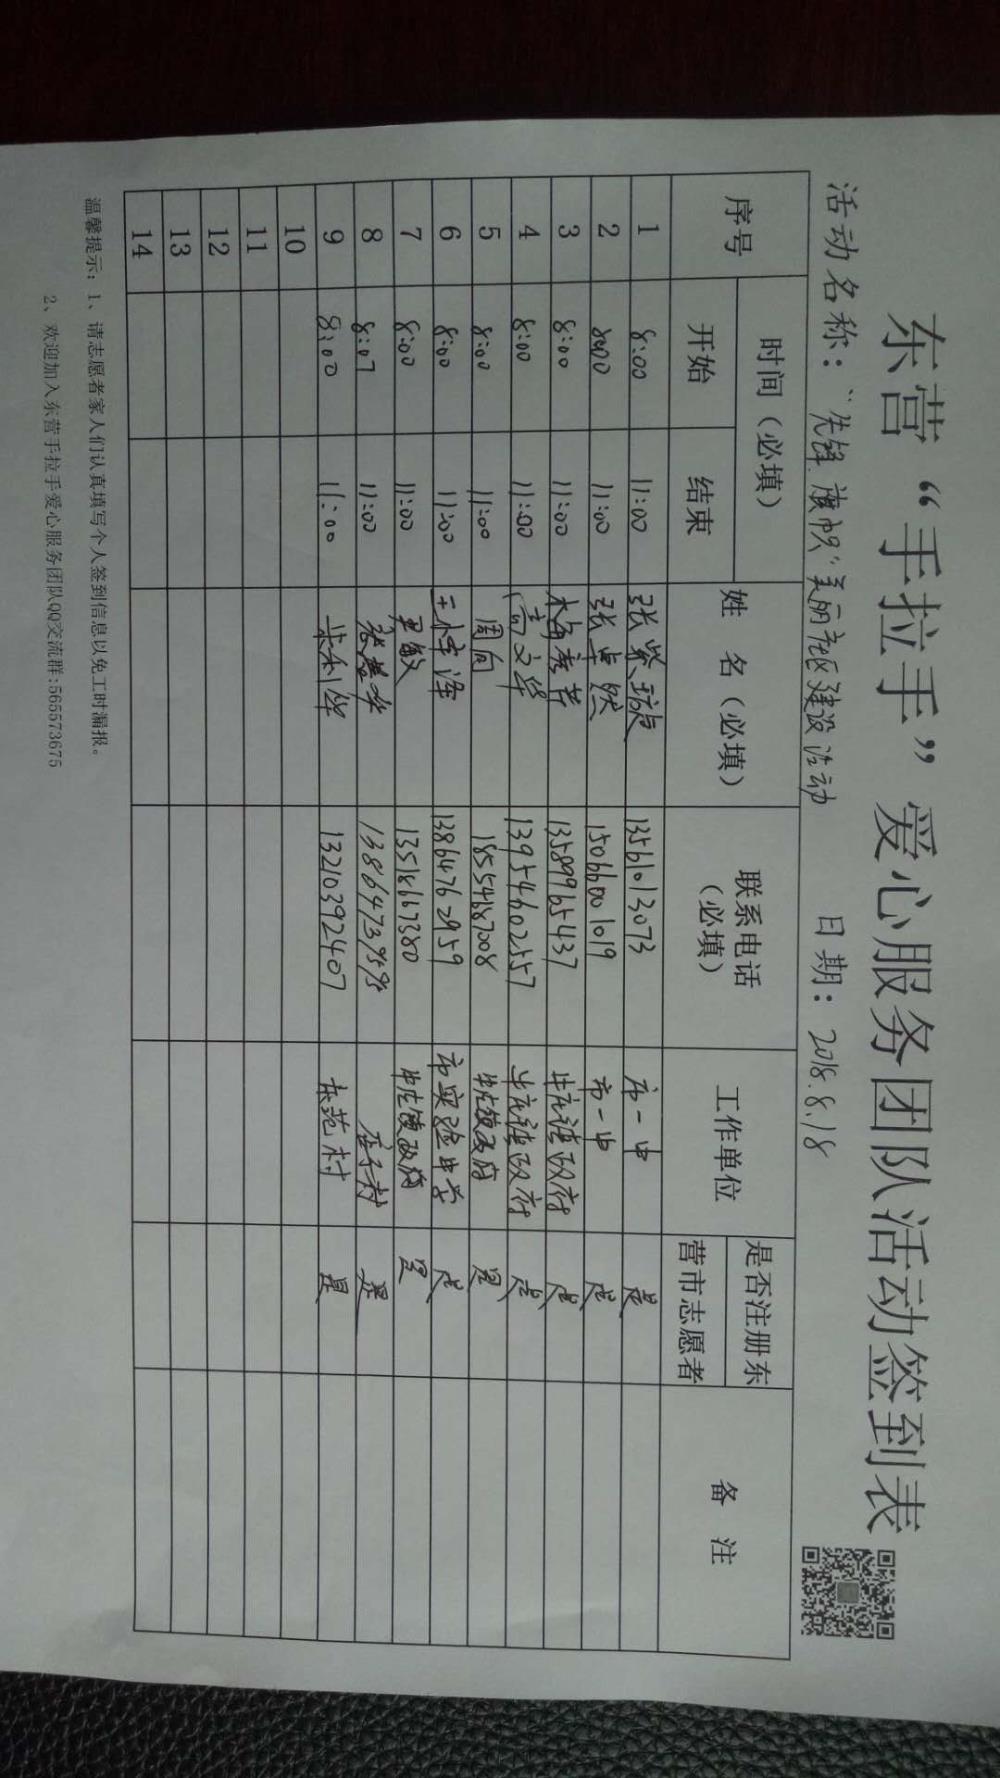 东营“手拉手”爱心服务团队活动签到表
活动名称：“先锋旗帜”美丽庄区建设活动 日期：2018.8.18
序号 时间（必填） 姓名（必填） 联系电话（必填） 工作单位 是否注册东营市志愿者 备注
开始 结束
1 8:00 11:00 张紫璇 13561013073 市一中 是
2 8:00 11:00 张卓然 15066001019 市一中 是
3 8:00 11:00 13589965437 牛庄镇政府 是
4 8:00 11:00 高文华 13954602557 牛庄镇政府 是
5 8:00 11:00 周向 18554687008 牛庄镇政府 是
6 8:00 11:00 王梓泽 13864762959 市实验中学 是
7 8:00 11:00 敏 13518667380 牛庄镇政府 是
8 8:07 11:00 张 村 是
9 8:00 11:00 13210392407 东范村 是
10
11
12
13
14
温馨提示：1、请志愿者家人们认真填写个人签到信息以免工时漏报。
2、欢迎加入东营手拉手爱心服务团队QQ交流群:565573675